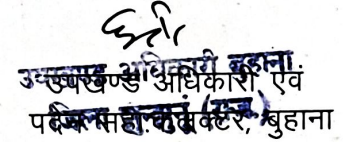 उपखण्ड अधिकारी बुहाना
उपखण्ड अधिकारी एवं
पदेन सहा. कलक्टर, बुहाना